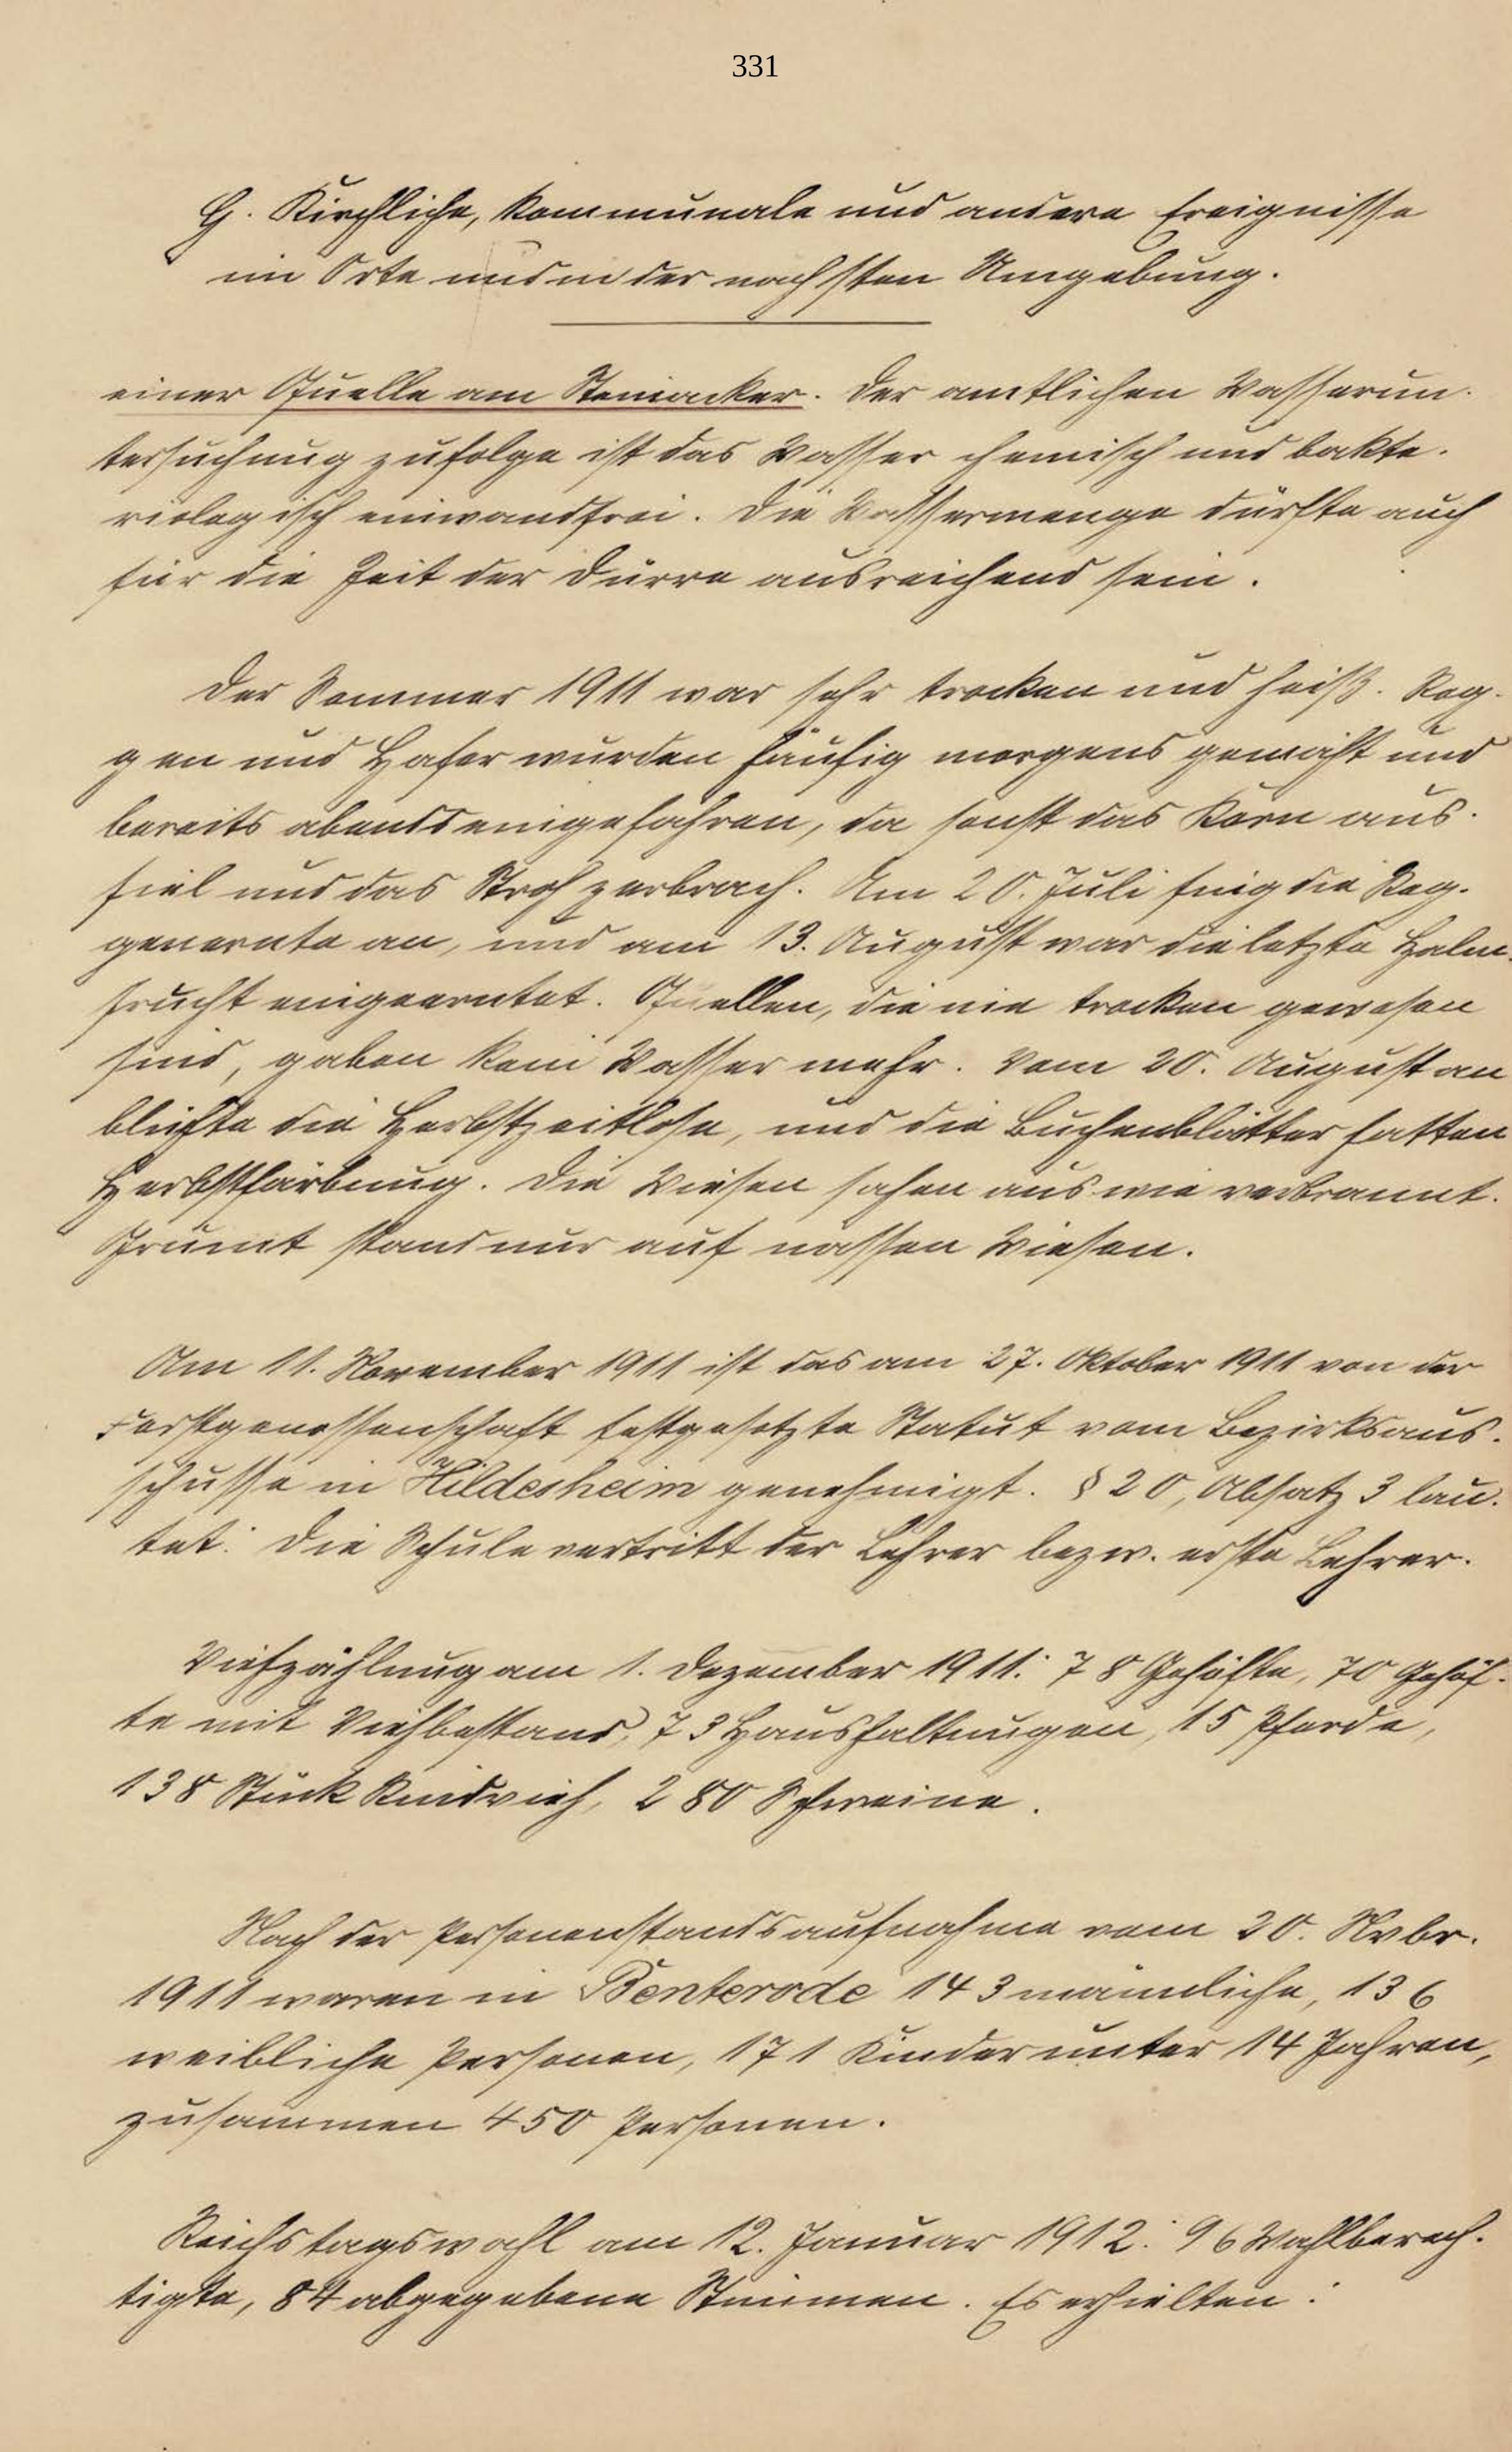 331
G. Kirchliche, kommunale und andere Ereignisse
im Orte und in der nächsten Umgebung.
einer Quelle am Steinacker. Der amtlichen Wasserun-
tersuchung zufolge ist das Wasser chemisch und bakte-
riologisch einwandfrei. Die Wassermenge dürfte auch
für die Zeit der Dürre ausreichend sein.
Der Sommer 1911 war sehr trocken und heiß. Rog-
gen und Hafer wurden häufig morgens gemäht und
bereits abends eingefahren, da sonst das Korn aus-
fiel und das Stroh zerbrach. Am 20. Juli fing die Rog-
genernte an, und am 13. August war die letzte Halm-
frucht eingeerntet. Quellen, die nie trocken gewesen
sind, gaben kein Wasser mehr. Vom 20. August an
blühte die Herbstzeitlose, und die Buchenblätter hatten
Herbstfärbung. Die Wiesen sahen aus wie verbrannt.
Grumt stand nur auf nassen Wiesen.
Am 11. November 1911 ist das am 27. Oktober 1911 von der
Forstgenossenschaft festgesetzte Statut vom Bezirksaus-
schusse in Hildesheim genehmigt. § 20, Absatz 3 lau-
tet: Die Schule vertritt der Lehrer bezw. erste Lehrer.
Viehzählung am 1. Dezember 1911: 78 Gehöfte, 70 Gehöf-
te mit Viehbestand, 73 Haushaltungen, 15 Pferde,
138 Stück Rindvieh, 280 Schweine.
Nach der Personenstandsaufnahme vom 20. Nvbr.
1911 waren in Benterode 143 männliche, 136
weibliche Personen, 171 Kinder unter 14 Jahren,
zusammen 450 Personen.
Reichstagswahl am 12. Januar 1912: 96 Wahlberech-
tigte, 84 abgegebene Stimmen. Es erhielten: